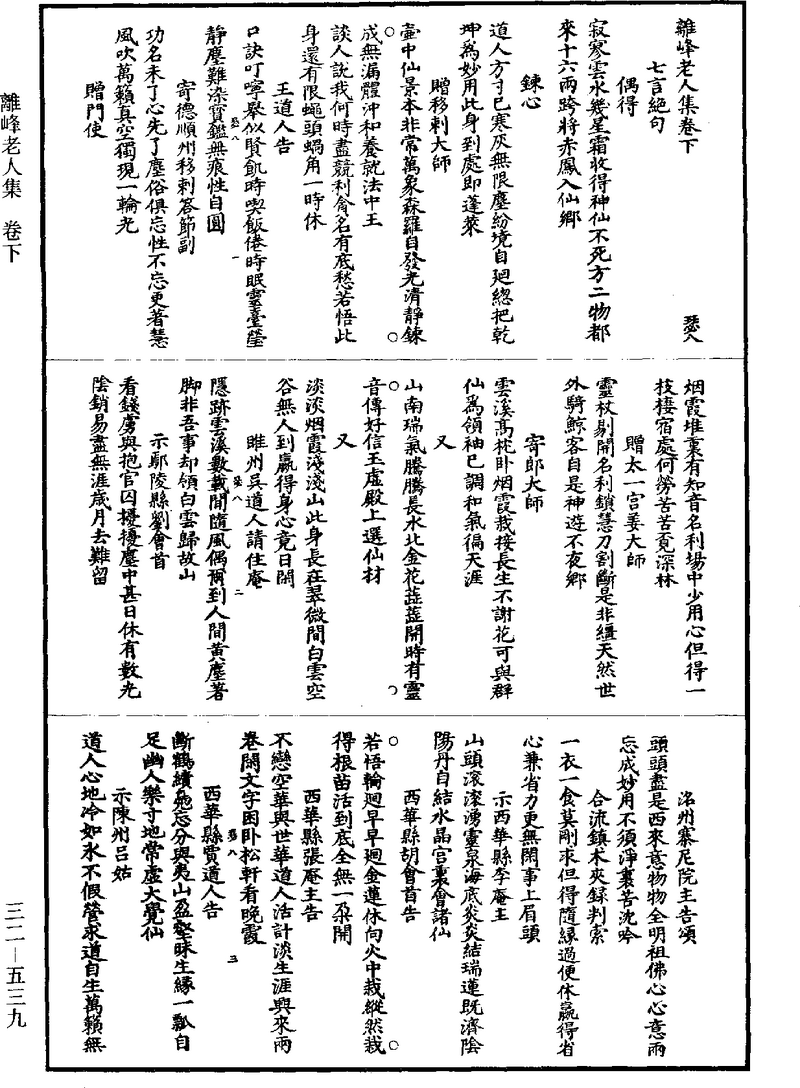 離峰老人集卷下
瑟八
七言絕句
偶得
寂寥雲水幾星霜收得神仙不死方二物都
來十六兩跨將赤鳳入仙鄉
鍊心
道人方寸已寒灰無限塵紛境自廻總把乾
坤爲妙用此身到處即蓬萊
贈移剌大師
壺中仙景本非常萬象森羅自發光清靜鍊
成無漏體沖和養就法中王
談人說我何時盡競利貪名有底愁若悟此
身還有限蠅頭蝸角一時休
王道人告
口訣叮嚀舉似賢飢時喫飯倦時眠靈臺瑩
靜塵難染寳鑑無痕性自圓
寄德順州移剌答節副
功名未了心先了塵俗俱忘性不忘更著慧
風吹萬籟真空獨現一輪光
贈門使
烟霞堆裏有知音名利場中少用心但得一
枝棲宿處何勞苦苦覓深林
贈太一宮姜大師
靈杖剔開名利鎖慧刀割斷是非繮天然世
外騎鯨客自是神遊不夜鄉
寄郎大師
雲溪高枕卧烟霞栽接長生不謝花可與群
仙爲領袖已調和氣徧天涯
又
山南瑞氣騰騰長水北金花蓝蓝開時有靈
音傳好信玉虛殿上選仙材
又
淡淡烟霞淺淺山此身長在翠微間白雲空
谷無人到贏得身心竟日閑
睢州吳道人請住庵
隱跡雲溪數載閒隨風偶爾到人間黄塵著
脚非吾事却領白雲歸故山
示鄢陵縣劉會首
看錢虜與抱官囚擾擾塵中甚日休有數光
陰銷易盡無涯歲月去難留
洺州寨尼院主告頌
頭頭盡是西來意物物全明祖佛心心意兩
忘成妙用不須淨裏苦沈吟
合流鎮木夾録判索
一衣一食莫剛求但得隨緣過便休贏得省
心兼省力更無閑事上眉頭
示西華縣李庵主
山頭滚滚湧靈泉海底炎炎結瑞蓮既濟陰
陽丹自結水晶宫裏會諸仙
西華縣胡會首告
若悟輪廻早早廻金蓮休向火中栽縱然栽
得根苗活到底全無一朶開
西華縣張庵主告
不戀空華與世華道人活計淡生涯興來兩
卷閑文字困卧松軒看晚霞
西華縣賈道人告
斷鶴續鳧忘分與夷山盈壑昧生緣一瓢自
足幽人樂寸地常虛大覺仙
示陳州吕姑
道人心地冷如氷不假營求道自生萬籟無
瑟八
一
瑟八
二
瑟八
三
離峰老人集 卷下
三二—五三九